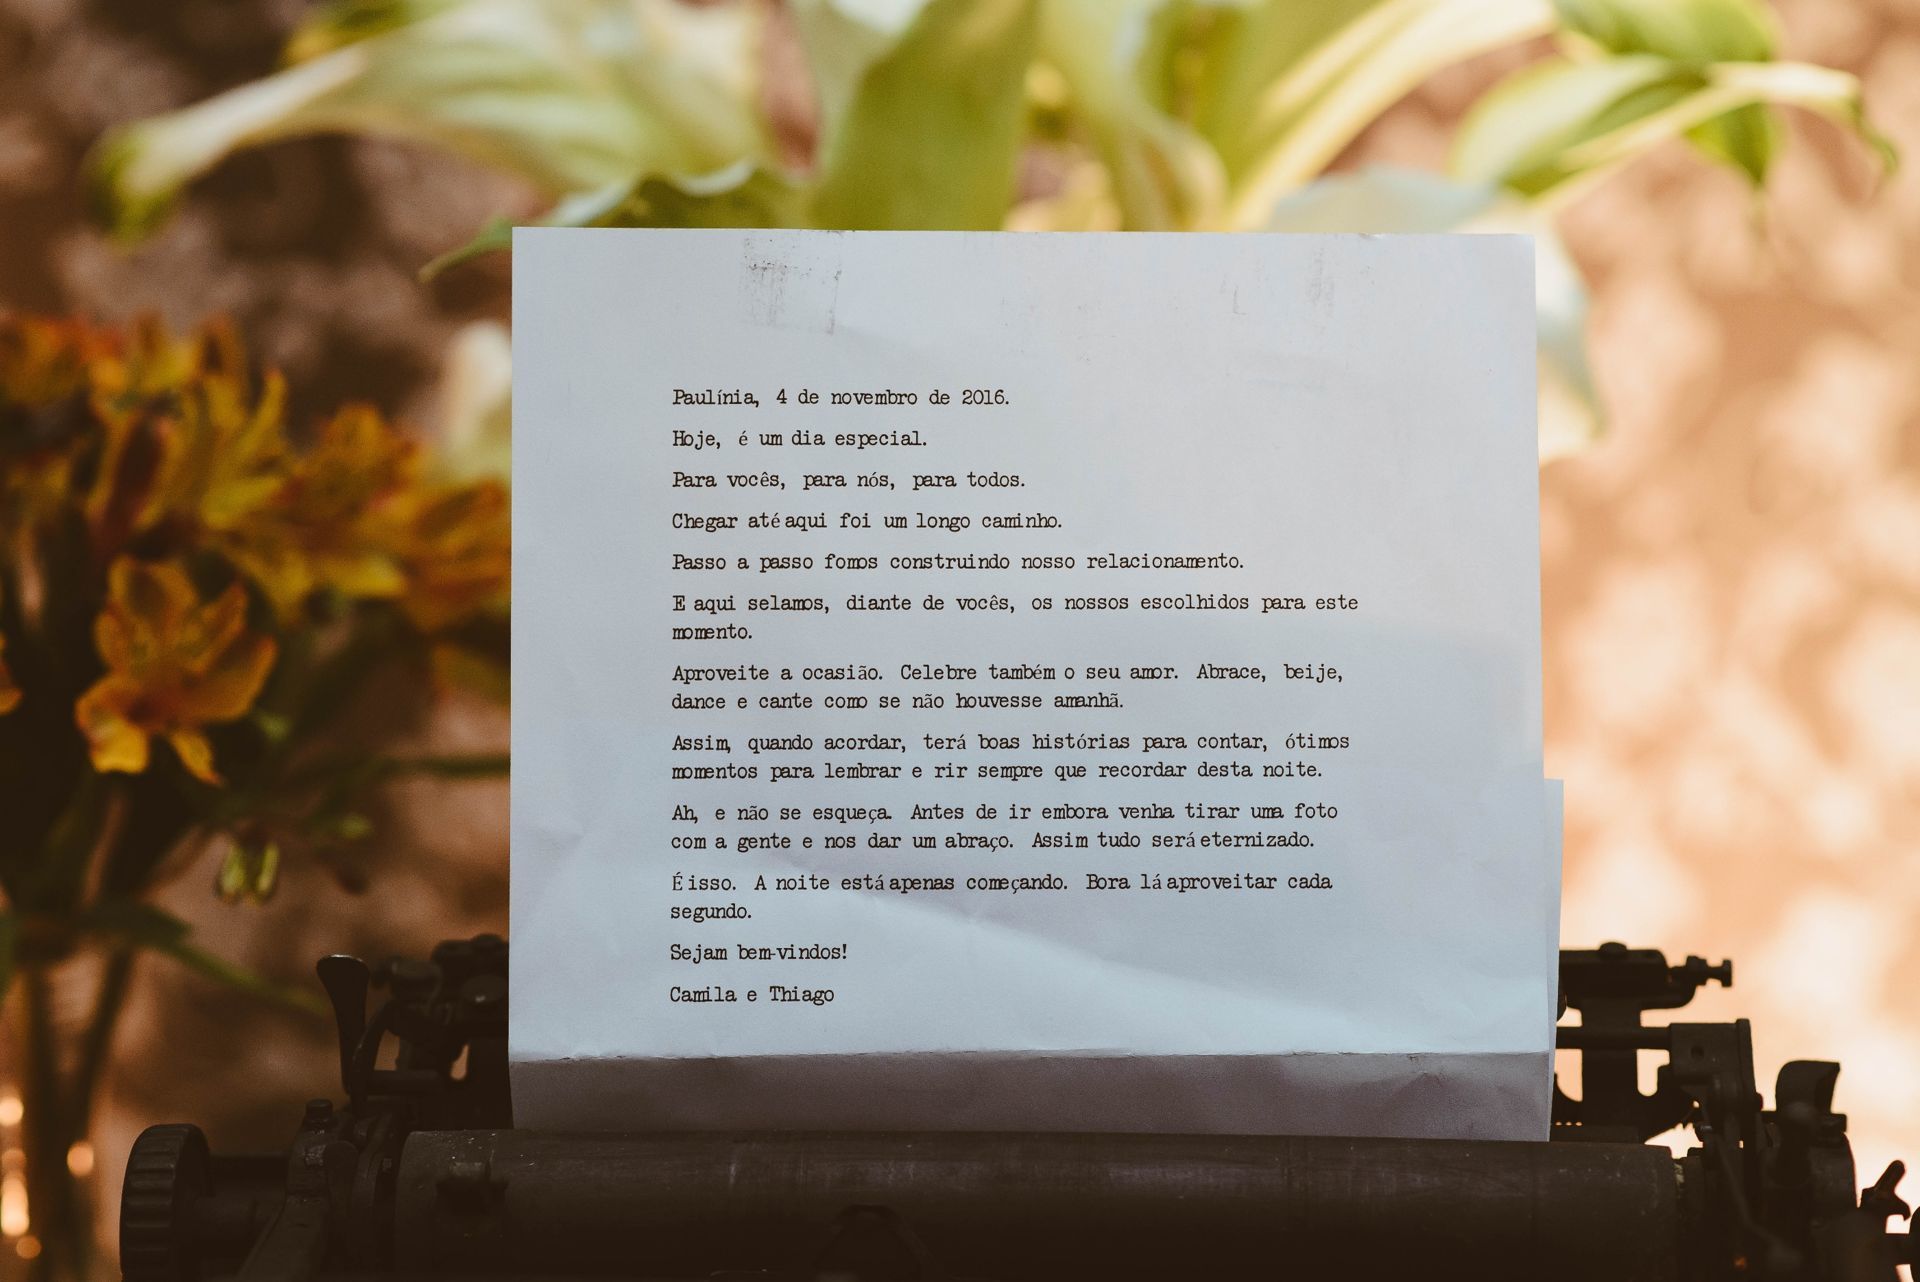 Paulínia, 4 de novembro de 2016.
Hoje, é um dia especial.
Para vocês, para nós, para todos.
Chegar até aqui foi um longo caminho.
Passo a passo fomos construindo nosso relacionamento.
E aqui selamos, diante de vocês, os nossos escolhidos para este
momento.
Aproveite a ocasião. Celebre também o seu amor. Abrace, beije,
dance e cante como se não houvesse amanhã.
Assim, quando acordar, terá boas histórias para contar, ótimos
momentos para lembrar e rir sempre que recordar desta noite.
Ah, e não se esqueça. Antes de ir embora venha tirar uma foto
com a gente e nos dar um abraço. Assim tudo será eternizado.
É isso. A noite está apenas começando. Bora lá aproveitar cada
segundo.
Sejam bem-vindos!
Camila e Thiago